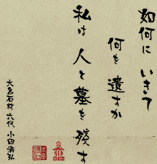 如何に いきて
何を遺すか
私は 人と墓を 残す
大島石材 六代 小田